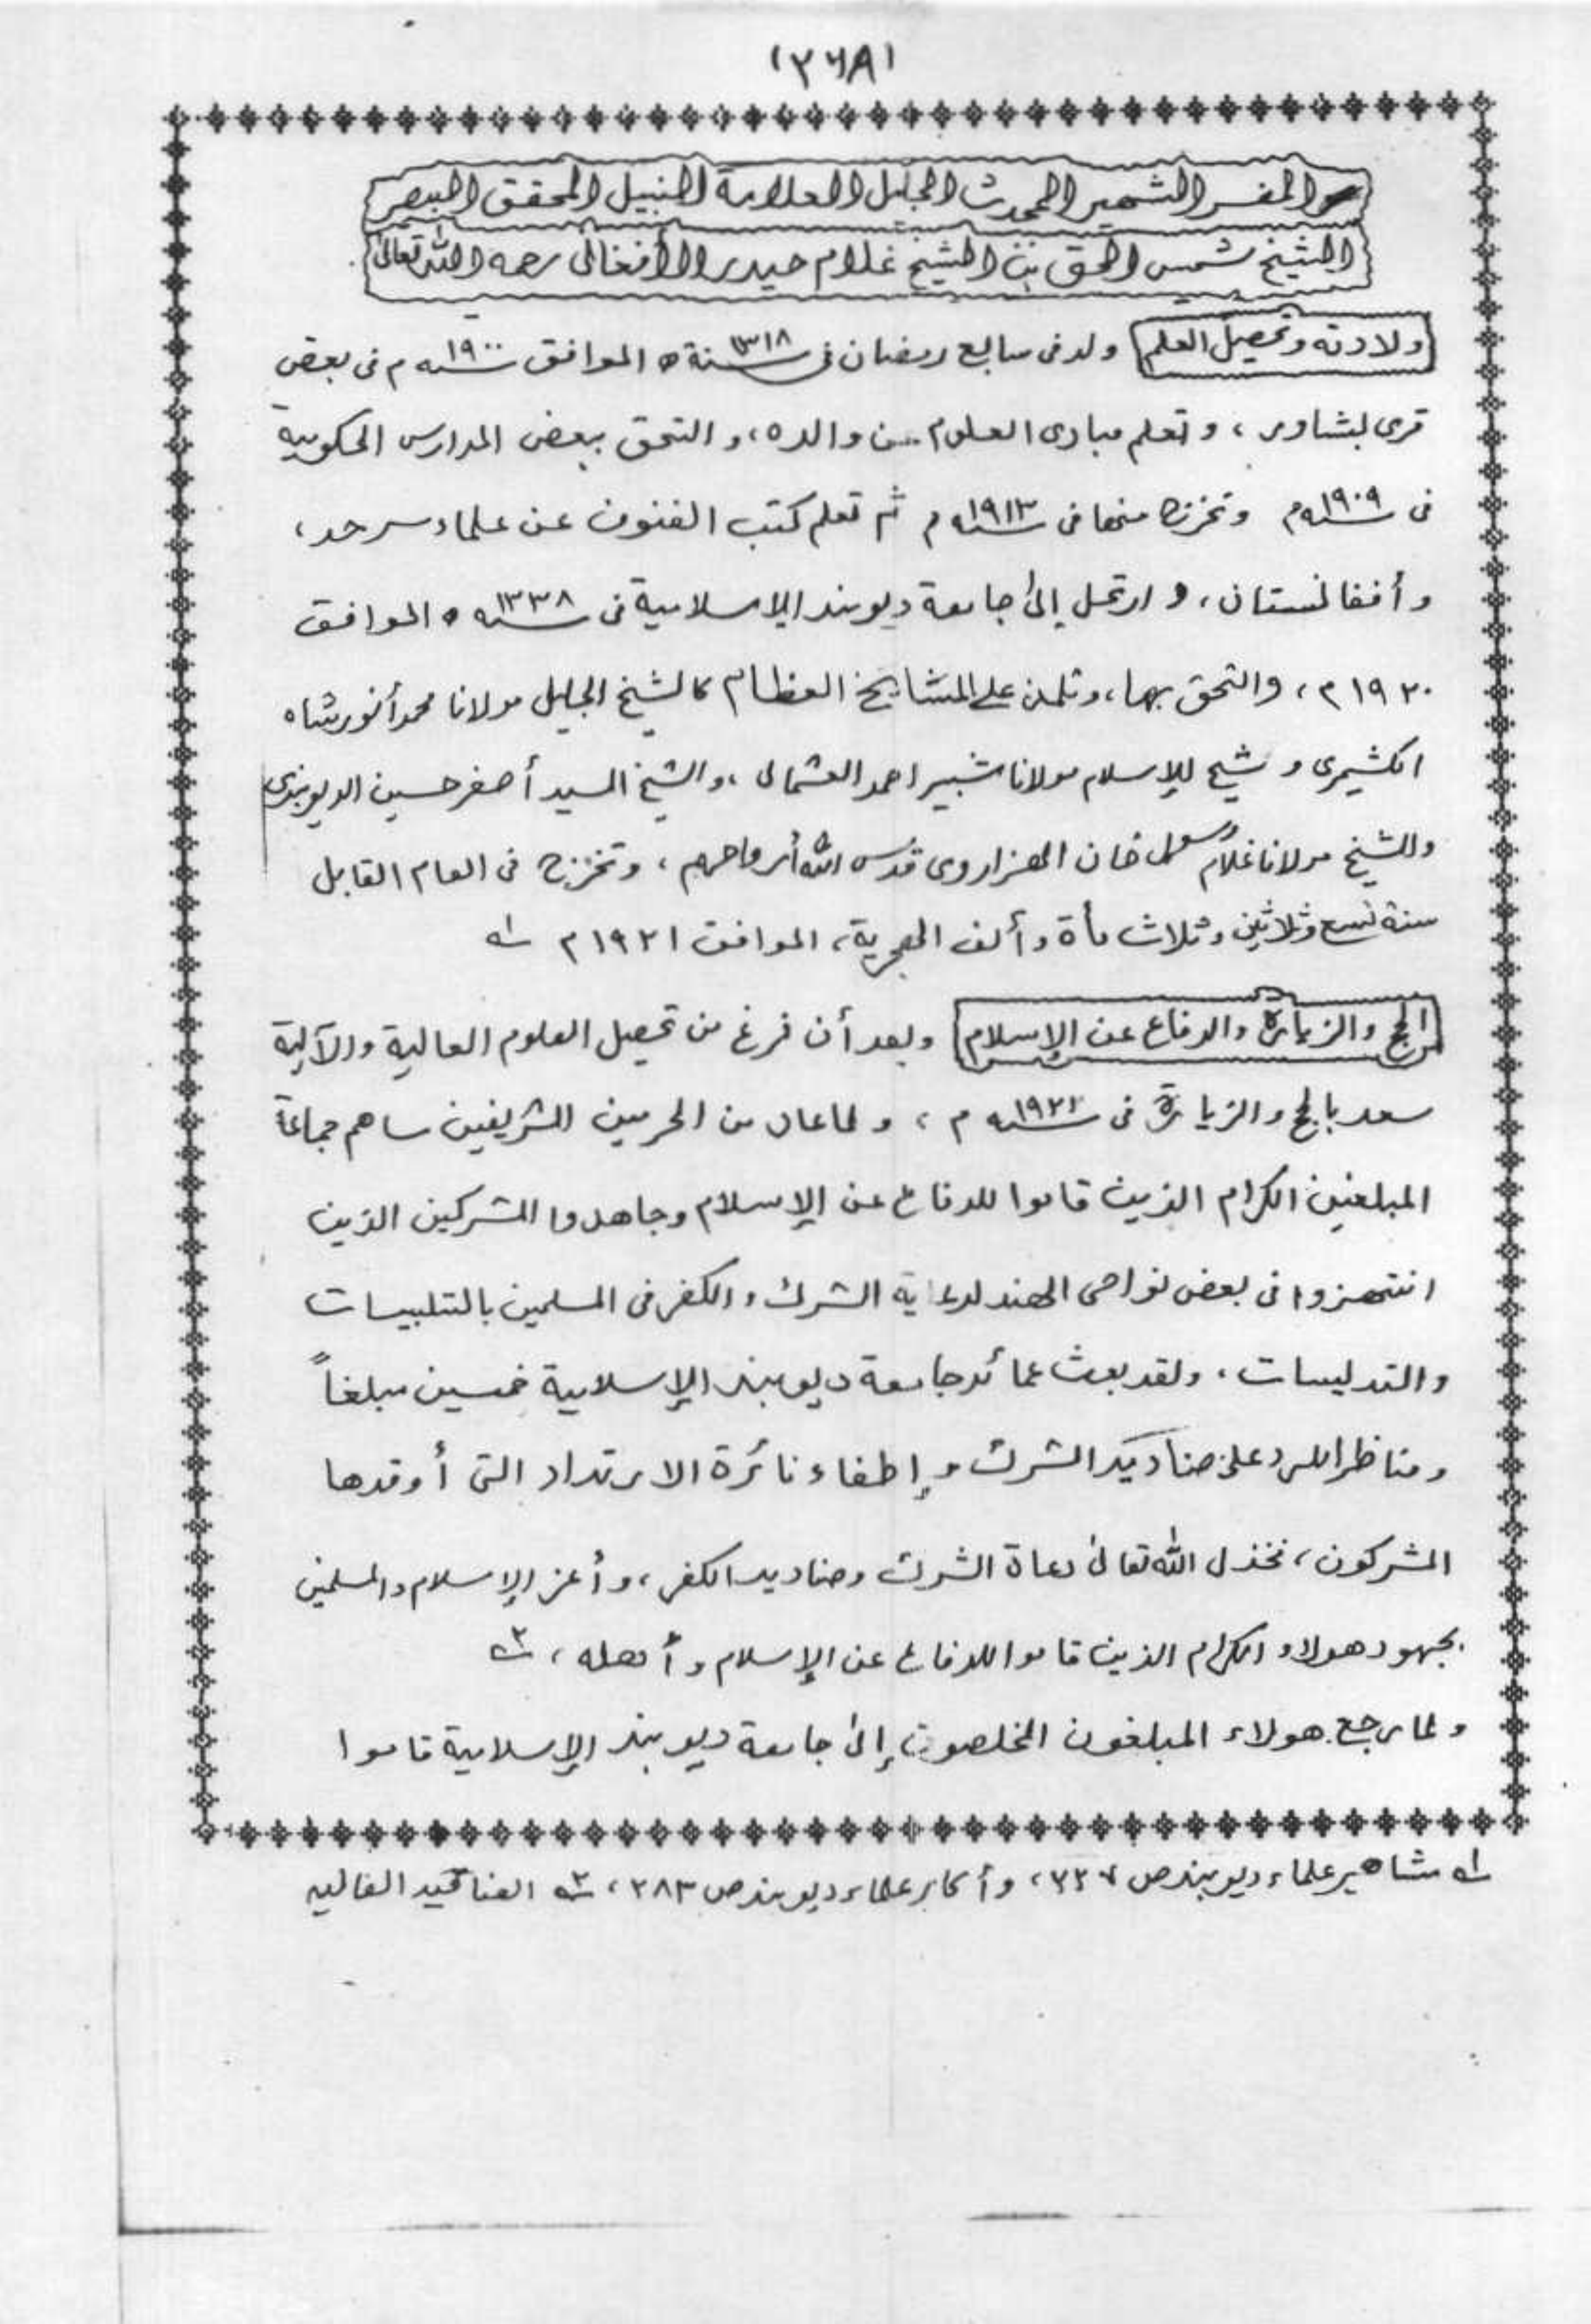 (٢٦٨)
المفسر الشهير المحدث الجليل العلامة النبيل المحقق المبصر
الشيخ شمس الحق بن الشيخ غلام حيدر الأفغانى رحمه الله تعالىٰ
ولادته وتحصيل العلم ولد فى سابع رمضان فى سنة ١٣١٨ ه الموافق سنه ١٩٠٠ م فى بعض
قرى بشاور ، وتعلم مبادى العلوم من والده ، و التحق ببعض المدارس الحكومية
فى سنه ١٩٠٩ م وتخرج منها فى سنه ١٩١٣ م ثم تعلم كتب الفنون عن علماء سرحد ،
وأفغانستان ، و ارتحل إلىٰ جامعة ديوبند الإسلامية فى سنه ١٣٣٨ ه الموافق
١٩٢٠ م ، والتحق بها ، وتلمذ على المشايخ العظام كالشيخ الجليل مولانا محمد أنور شاه
الكشيرى و شيخ الإسلام مولانا شبير احمد العثمانى ، والشيخ السيد أصغر حسين الديوبندى
والشيخ مولانا غلام رسول خان الهزاروى قدس الله أرواحهم ، وتخرج فى العام القابل
سنة تسع وثلاثين وثلاث مأة وألف الهجرية ، الموافق ١٩٢١ م ١ه
الحج والزيارة والدفاع عن الإسلام وبعد أن فرغ من تحصيل العلوم العالية والآلية
سعد بالحج والزيارة فى سنه ١٩٢٢ م ، ولما عاد من الحرمين الشريفين ساهم جماعة
المبلغين الكرام الذين قاموا للدفاع عن الإسلام وجاهدوا المشركين الذين
انتهزوا فى بعض نواحى الهند لدعاية الشرك والكفر فى المسلمين بالتلبيسات
والتدليسات ، ولقد بعث عمائد جامعة ديوبند الإسلامية خمسين مبلغاً
ومناظرا للرد على صناديد الشرك وإطفاء نائرة الارتداد التى أوقدها
المشركون ، فخذل الله تعالىٰ دعاة الشرك وصناديد الكفر ، وأعز الإسلام والمسلمين
بجهود هولاء الكرام الذين قاموا للدفاع عن الإسلام وأهله ، ٢ه
ولما رجع هولاء المبلغون المخلصون إلىٰ جامعة ديوبند الإسلامية قاموا
١ه مشاهير علماء ديوبند ص ٢٢٧ ، وأكابر علماء ديوبند ص ٢٨٣ ، ٢ه العناقيد الغاليه